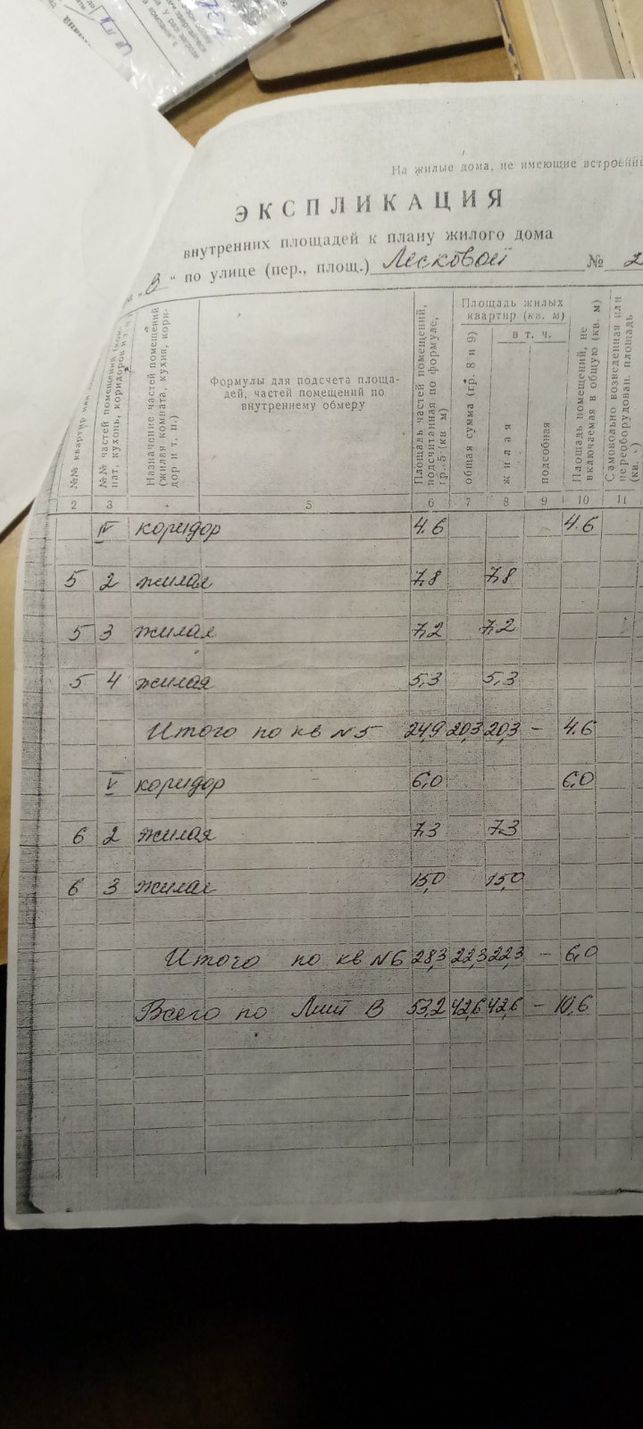 На жилые дома, не имеющие встроенн
ЭКСПЛИКАЦИЯ
внутренних площадей к плану жилого дома
"В" по улице (пер., площ.) Лесковой № 2
№№ квартир или
№№ частей помещений (ком-
нат, кухонь, коридоров и т. п.)
Назначение частей помещений
(жилая комната, кухня, кори-
дор и т. п.)
Формулы для подсчета площа-
дей, частей помещений по
внутреннему обмеру
Площадь частей помещений,
подсчитанная по формуле,
гр. 5 (кв м)
Площадь жилых
квартир (кв. м)
общая сумма (гр. 8 и 9)
в т. ч.
жилая
подсобная
Площадь помещений, не
включаемая в общую (кв. м)
Самовольно возведенная или
переоборудован. площадь
(кв.
2 3 4 5 6 7 8 9 10 11
IV коридор 4.6 4.6
5 2 жилая 7,8 7,8
5 3 жилая 7,2 7,2
5 4 жилая 5,3 5,3
Итого по кв №5 24,9 20,3 20,3 – 4.6
V коридор 6,0 6,0
6 2 жилая 7,3 7,3
6 3 жилая 15,0 15,0
Итого по кв №6 28,3 22,3 22,3 – 6,0
Всего по Лит В 53,2 42,6 42,6 – 10,6